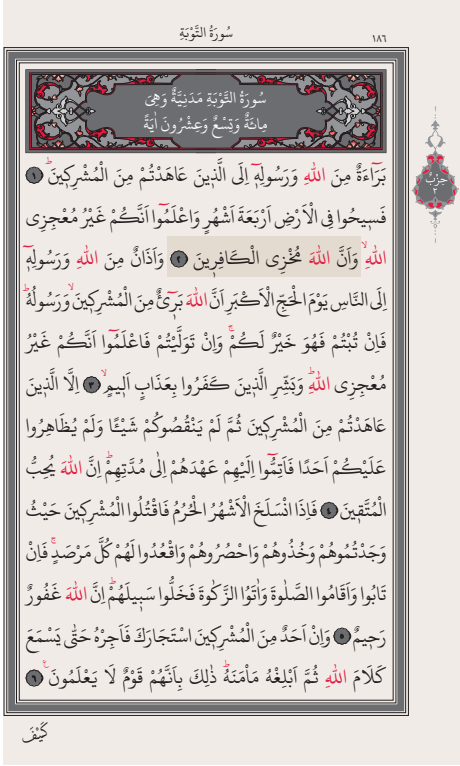 سُورَةُ التَّوْبَةِ
١٨٦
سُورَةُ التَّوْبَةِ مَدَنِيَّةٌ وَهِيَ
مِائَةٌ وَتِسْعٌ وَعِشْرُونَ اٰيَةً
بَرَٓاءَةٌ مِنَ اللّٰهِ وَرَسُولِه۪ٓ اِلَى الَّذ۪ينَ عَاهَدْتُمْ مِنَ الْمُشْرِك۪ينَۜ ١
حِزْبٌ
٢
فَس۪يحُوا فِي الْاَرْضِ اَرْبَعَةَ اَشْهُرٍ وَاعْلَمُٓوا اَنَّكُمْ غَيْرُ مُعْجِزِي
اللّٰهِۙ وَاَنَّ اللّٰهَ مُخْزِي الْكَافِر۪ينَ ٢ وَاَذَانٌ مِنَ اللّٰهِ وَرَسُولِه۪ٓ
اِلَى النَّاسِ يَوْمَ الْحَجِّ الْاَكْبَرِ اَنَّ اللّٰهَ بَر۪ٓيءٌ مِنَ الْمُشْرِك۪ينَۙ وَرَسُولُهُۜ
فَاِنْ تُبْتُمْ فَهُوَ خَيْرٌ لَكُمْۚ وَاِنْ تَوَلَّيْتُمْ فَاعْلَمُٓوا اَنَّكُمْ غَيْرُ
مُعْجِزِي اللّٰهِۜ وَبَشِّرِ الَّذ۪ينَ كَفَرُوا بِعَذَابٍ اَل۪يمٍۙ ٣ اِلَّا الَّذ۪ينَ
عَاهَدْتُمْ مِنَ الْمُشْرِك۪ينَ ثُمَّ لَمْ يَنْقُصُوكُمْ شَيْـًٔا وَلَمْ يُظَاهِرُوا
عَلَيْكُمْ اَحَدًا فَاَتِمُّٓوا اِلَيْهِمْ عَهْدَهُمْ اِلٰى مُدَّتِهِمْۜ اِنَّ اللّٰهَ يُحِبُّ
الْمُتَّق۪ينَ ٤ فَاِذَا انْسَلَخَ الْاَشْهُرُ الْحُرُمُ فَاقْتُلُوا الْمُشْرِك۪ينَ حَيْثُ
وَجَدْتُمُوهُمْ وَخُذُوهُمْ وَاحْصُرُوهُمْ وَاقْعُدُوا لَهُمْ كُلَّ مَرْصَدٍۚ فَاِنْ
تَابُوا وَاَقَامُوا الصَّلٰوةَ وَاٰتَوُا الزَّكٰوةَ فَخَلُّوا سَب۪يلَهُمْۜ اِنَّ اللّٰهَ غَفُورٌ
رَح۪يمٌ ٥ وَاِنْ اَحَدٌ مِنَ الْمُشْرِك۪ينَ اسْتَجَارَكَ فَاَجِرْهُ حَتّٰى يَسْمَعَ
كَلَامَ اللّٰهِ ثُمَّ اَبْلِغْهُ مَأْمَنَهُۜ ذٰلِكَ بِاَنَّهُمْ قَوْمٌ لَا يَعْلَمُونَ۟ ٦
كَيْفَ